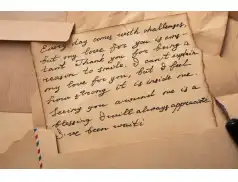 Every day comes with challenges,
but my love for you is cons-
tant. Thank you for being a
reason to smile. I can't explain
my love for you, but I feel
how strong it is inside me.
Seeing you around me is a
blessing. I will always appreciate
I've been waiti